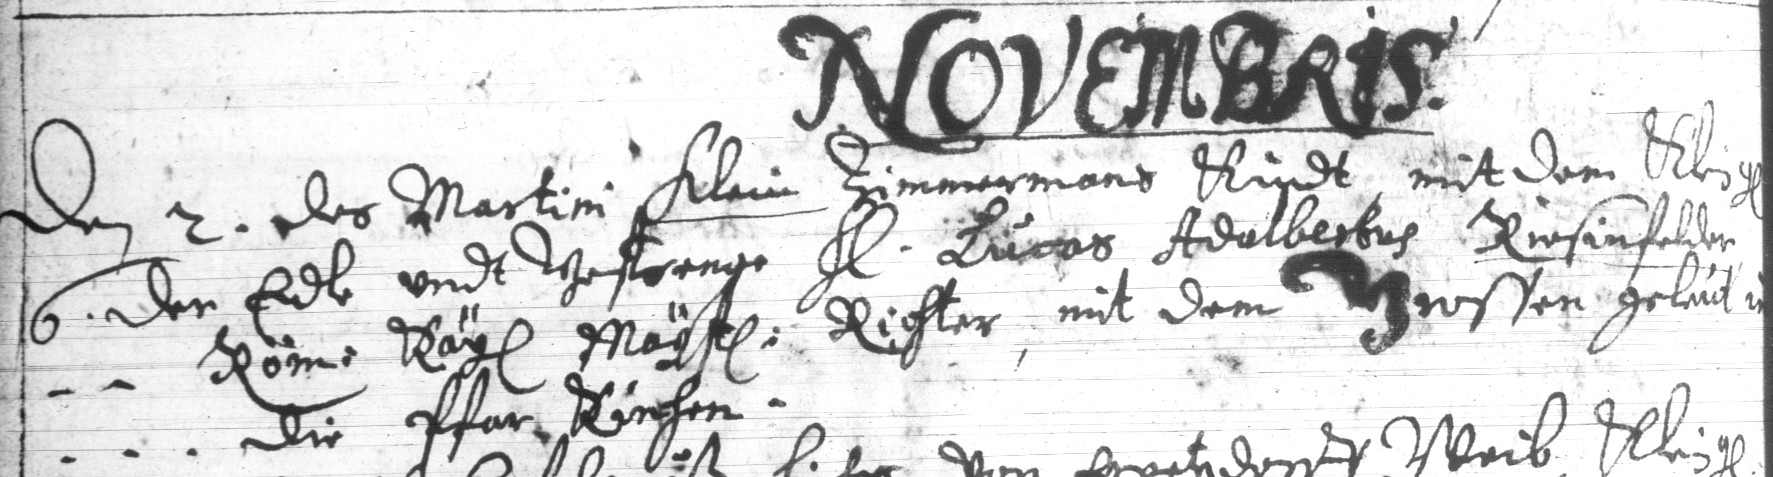 NOVEMBRIS.
Den 2. des Martini Klein Zimmermans Kindt mit dem Klein gl
6. Der Edle undt Gestrenge H. Lucas Adalbertus Riesinfelder
Röm: Kay: Maÿst: Richter, mit dem Grossen geleut in
die Pfar Kirchen.
von Weib Klein gl.